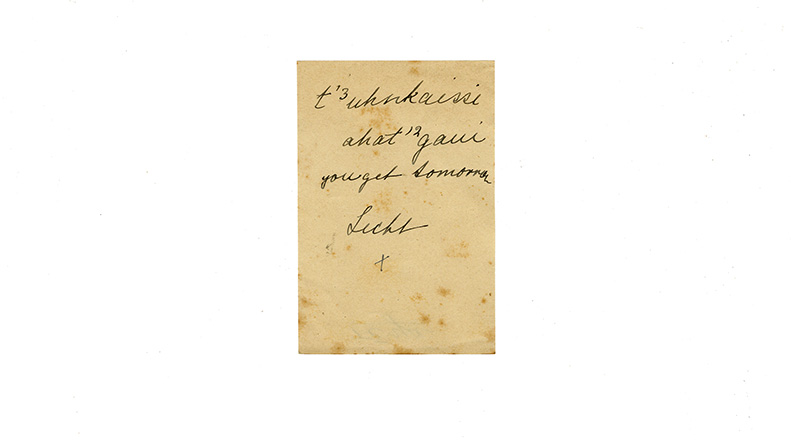 t'3 uhnkaissi
ahat'2 gaui
you get tomorrow
Licht
x